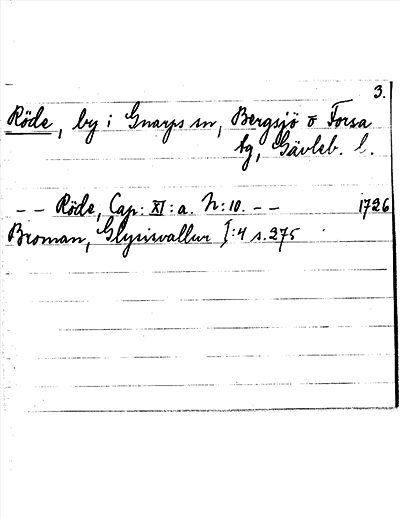 3.
Röde, by i Gnarps sn, Bergsjö o Forsa
tg, Gävleb. l.
-- Röde, Cap: XI: a. N: 10. -- 1726
Broman, Glysisvallur I:4 s. 275